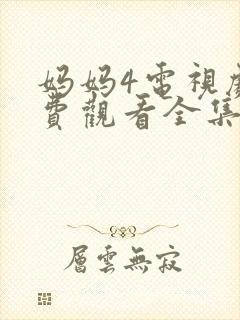 妈妈4電視
費觀看全集
層雲無寂